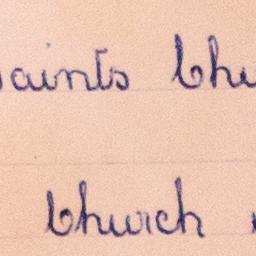 saints Chu
Church